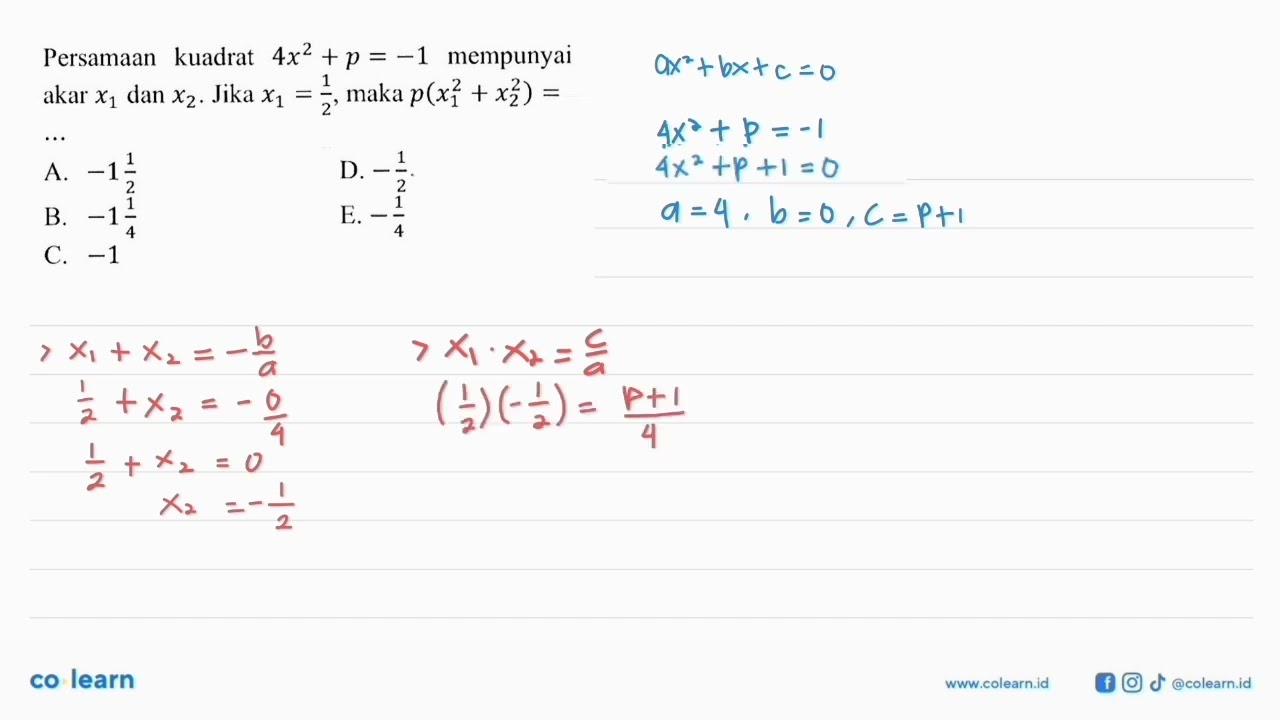 Persamaan kuadrat 4x² + p = −1 mempunyai
akar x₁ dan x₂. Jika x₁ = 1/2, maka p(x₁² + x₂²) =
...
A. −1 1/2
B. −1 1/4
C. −1
D. −1/2.
E. −1/4
ax² + bx + c = 0
4x² + p = -1
4x² + p + 1 = 0
a = 4, b = 0, c = p+1
> x₁ + x₂ = -b/a
1/2 + x₂ = -0/4
1/2 + x₂ = 0
x₂ = -1/2
> x₁ · x₂ = c/a
(1/2)(-1/2) = p+1/4
co learn
www.colearn.id
@colearn.id